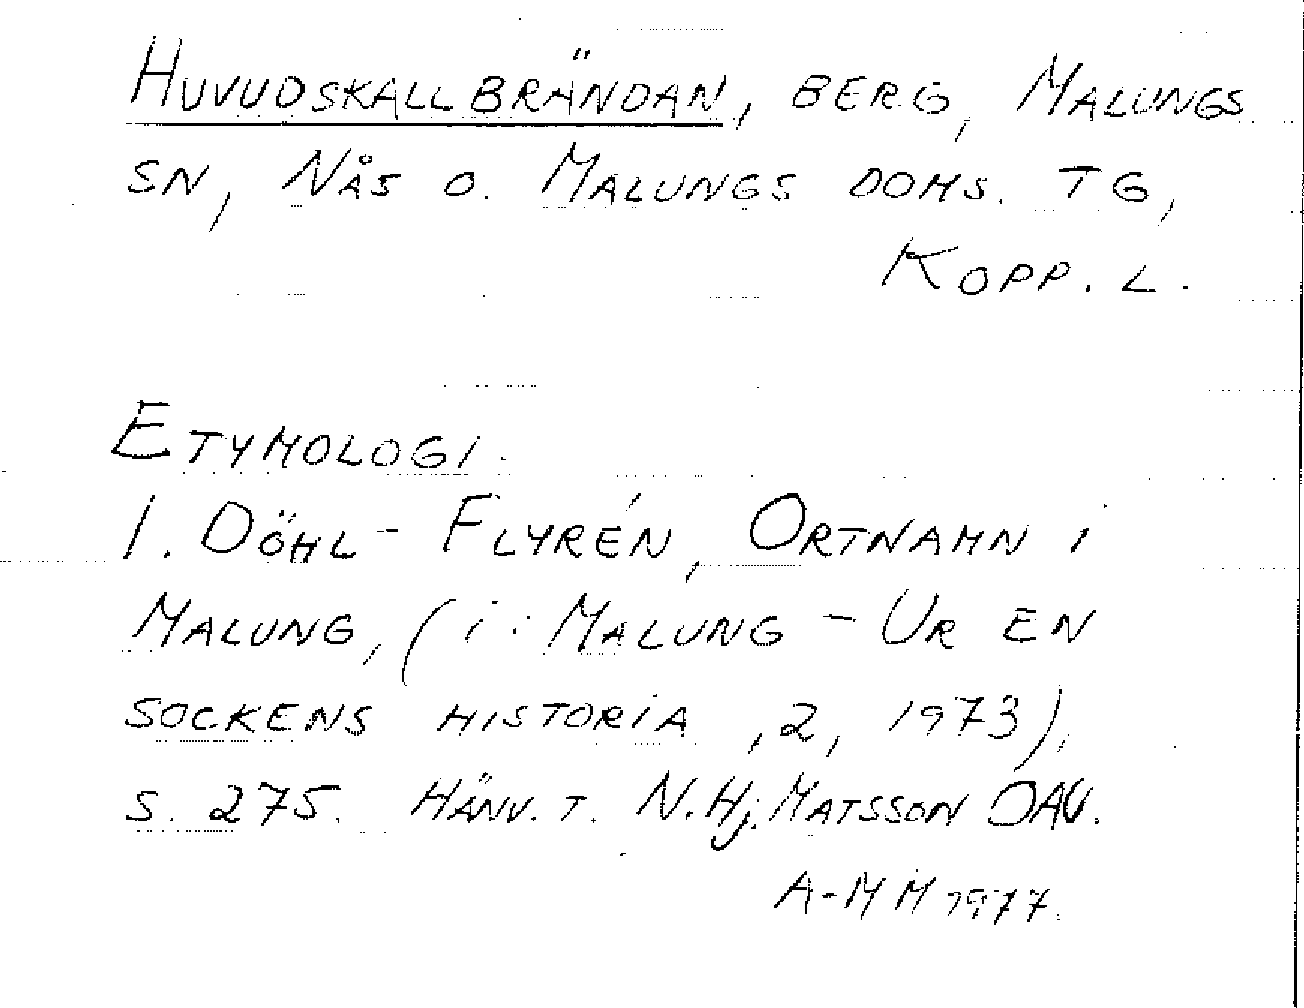 HUVUDSKALLBRÄNDAN, BERG, MALUNGS
SN, NÅS O. MALUNGS DOMS. TG,
KOPP. L.
ETYMOLOGI.
I. DÖHL-FLYRÉN, ORTNAMN I
MALUNG, (i: MALUNG - UR EN
SOCKENS HISTORIA, 2, 1973),
S. 275. HÄNV. T. N.Hj. MATSSON OAU.
A-MM 1977.